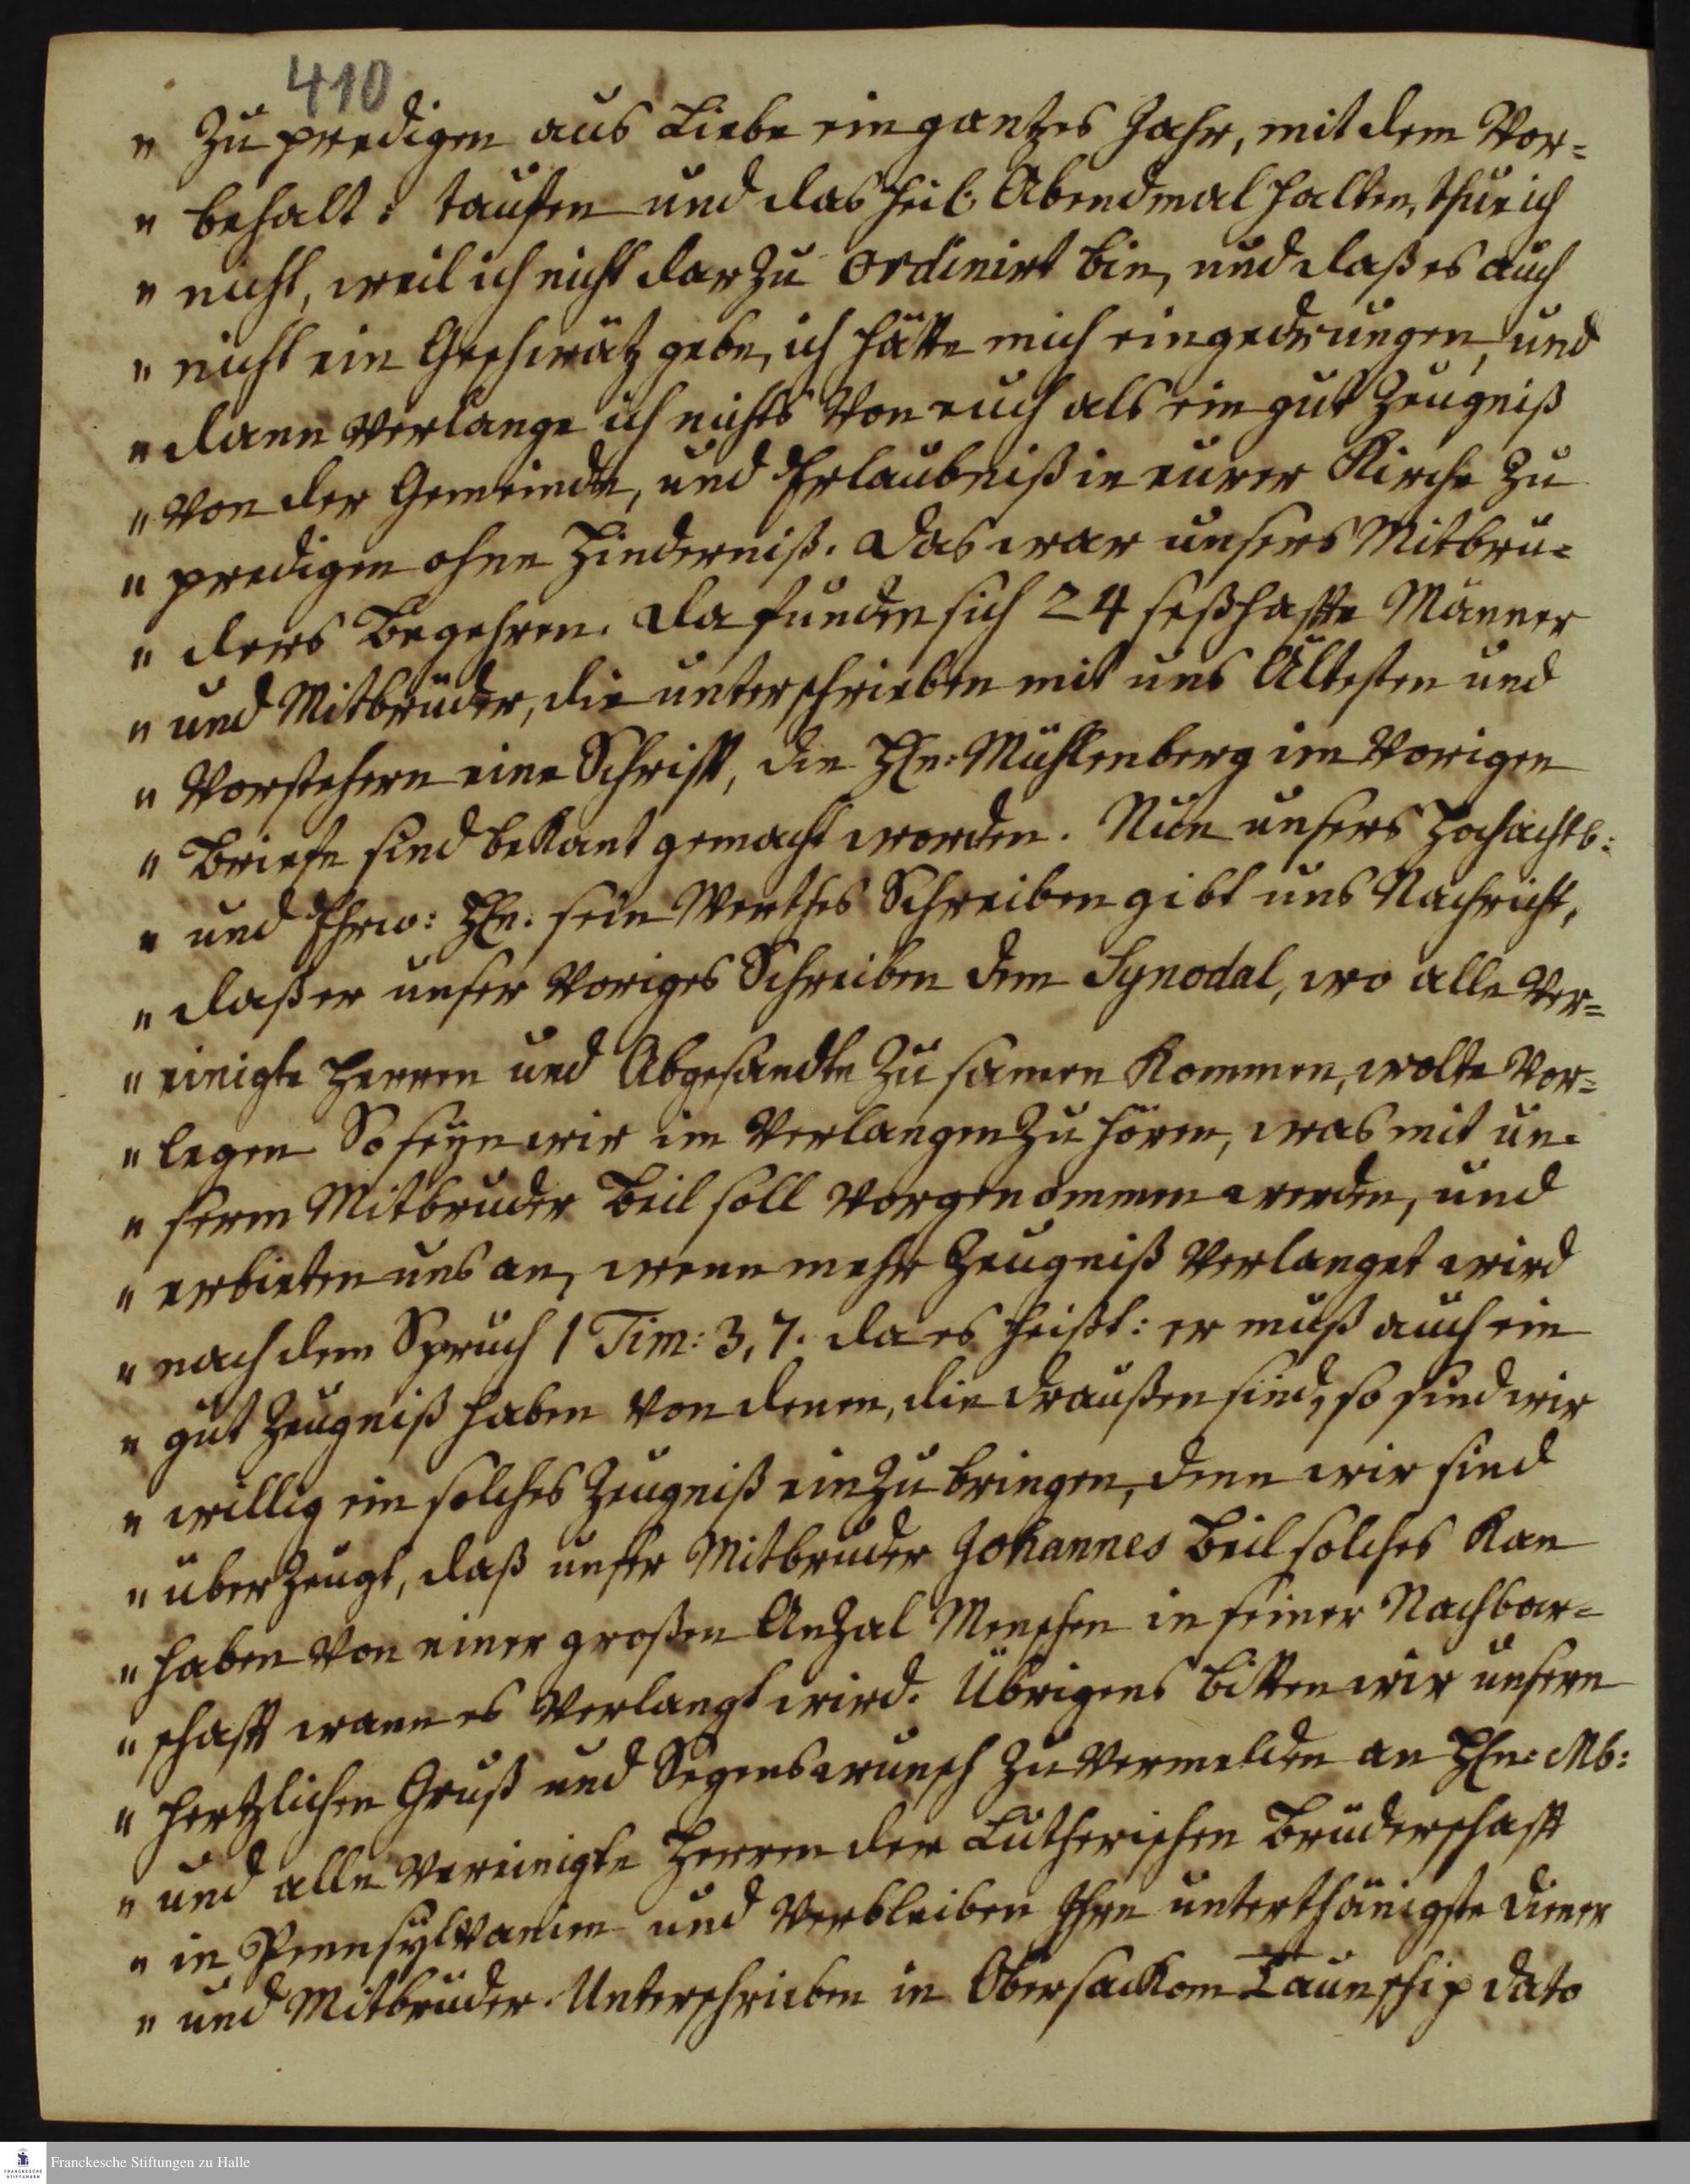 410
" Zu predigen aus Liebe ein gantzes Jahr, mit dem Vor=
" behalt: tauffen und das heil: Abendmal halten, thue ich
" nicht, weil ich nicht darzu ordinirt bin, und daß es auch
" nicht ein Geschwätz gebe, ich hätte mich eingedrungen, und
" dann verlange ich nichts von euch als ein gut Zeugniß
" von der Gemeinde, und Erlaubniß in eurer Kirche zu
" predigen ohne Hinderniß. Das war unsers Mitbru=
" ders Begehren. Da funden sich 24 seßhaffte Männer
" und Mitbrüder, die unterschrieben mit uns Ältesten und
" Vorstehern eine Schrifft, die Hn: Mühlenberg im vorigen
" Briefe sind bekant gemacht worden. Nun unsers Hochachtb:
" und Ehrw: Hn. sein werthes Schreiben gibt uns Nachricht,
" daß er unser voriges Schreiben dem Synodal, wo alle Ver=
" einigte Herren und Abgesandte zusamen kommen, wolte vor=
" legen. So seyn wir im Verlangen zu hören, was mit un=
" serm Mitbruder Beil soll vorgenommen werden, und
" erbieten uns an, wenn mehr Zeugniß verlanget wird
" nach dem Spruch 1 Tim: 3, 7. da es heißt: er muß auch ein
" gut Zeugniß haben von denen, die draußen sind, so sind wir
" willig ein solches Zeugniß einzubringen, denn wir sind
" überzeugt, daß unser Mitbruder Johannes Beil solches kan
" haben von einer großen Anzal Menschen in seiner Nachbar=
" schafft wann es verlangt wird. Übrigens bitten wir unsern
" hertzlichen Gruß und Segenswunsch zu vermelden an Hn: Mb:
" und alle vereinigte Herren der Lutherischen Brüderschafft
" in Pennsylvanien und verbleiben Ihre unterthänigste Diener
" und Mitbrüder. Unterschrieben in Obersackom Taunschip dato
Franckesche Stiftungen zu Halle